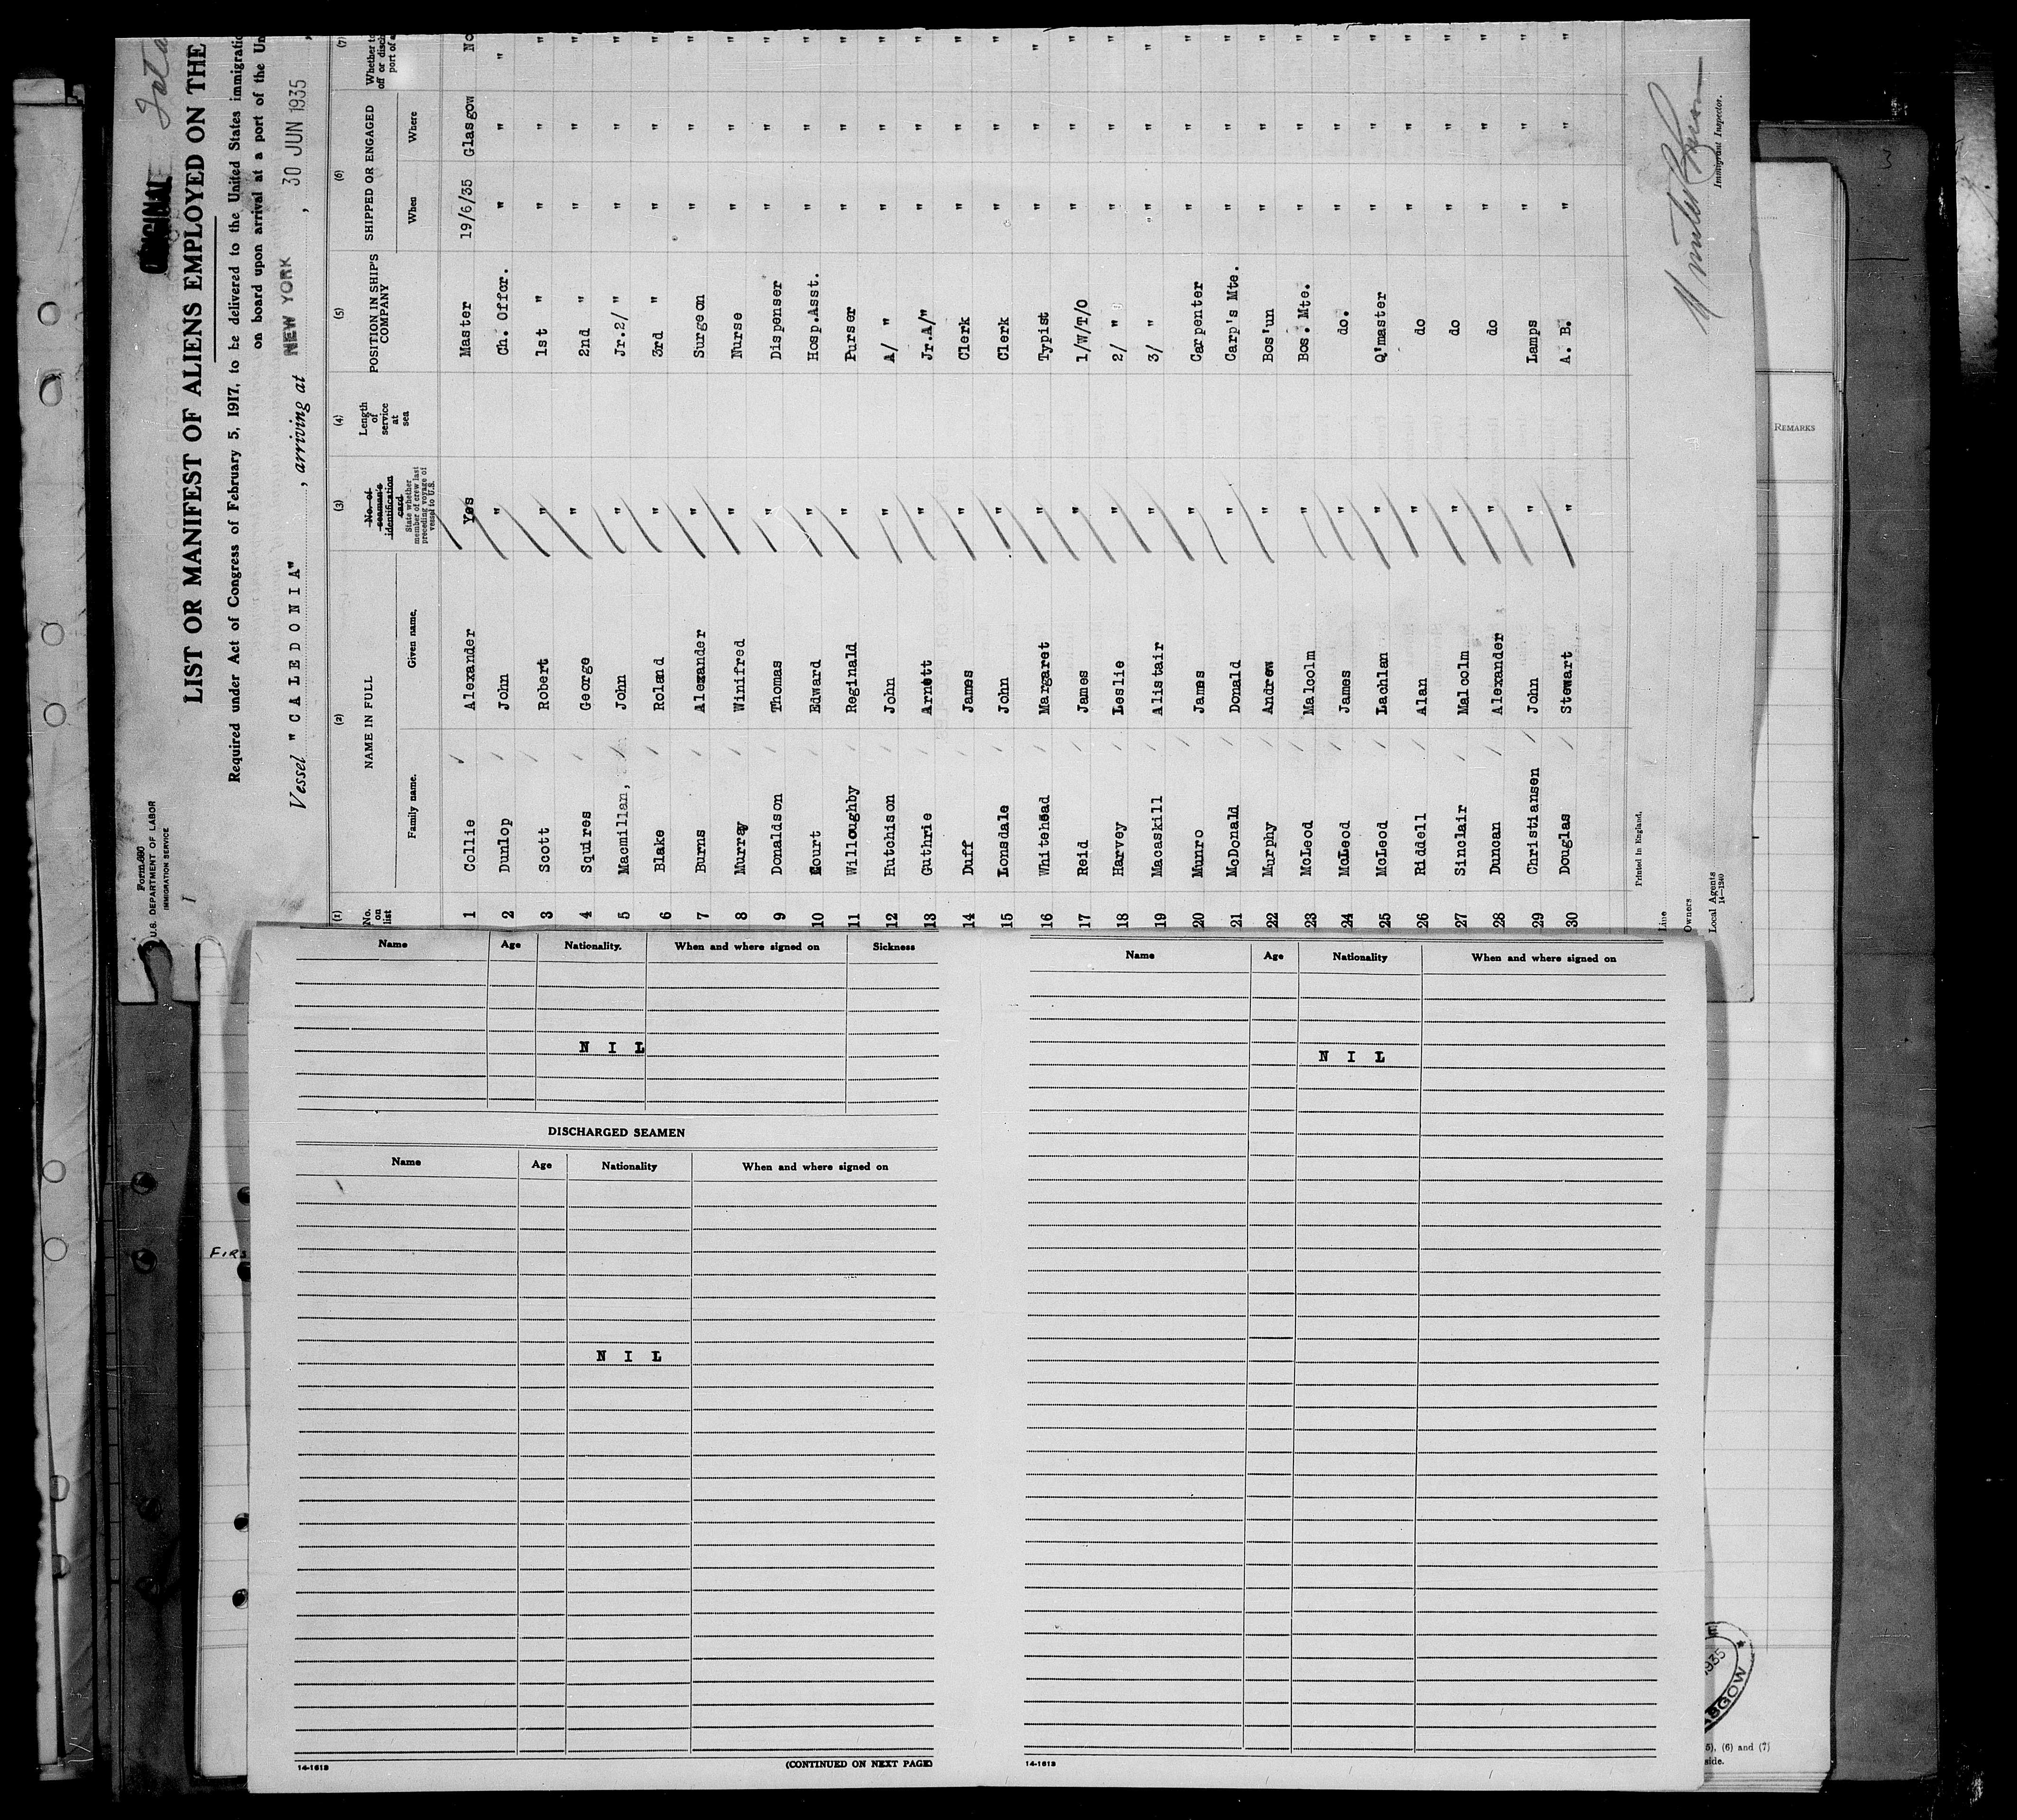 Form 680
U.S. DEPARTMENT OF LABOR
IMMIGRATION SERVICE
ORIGINAL
LIST OR MANIFEST OF ALIENS EMPLOYED ON THE
Required under Act of Congress of February 5, 1917, to be delivered to the United States immigratio
on board upon arrival at a port of the Un
Vessel "CALEDONIA", arriving at NEW YORK, 30 JUN 1935,
(1) (2) (3) (4) (5) (6) (7)
No. on list NAME IN FULL Family name. Given name. No. of seaman's identification card State whether member of crew last preceding voyage of vessel to U.S. Length of service at sea POSITION IN SHIP'S COMPANY SHIPPED OR ENGAGED When Where Whether to off or disch port of a
1 Collie Alexander Yes Master 19/6/35 Glasgow No
2 Dunlop John " Ch. Offor. " " "
3 Scott Robert " 1st " " " "
4 Squires George " 2nd " " " "
5 Macmillan, John " Jr.2/ " " " "
6 Blake Roland " 3rd " " " "
7 Burns Alexander " Surgeon " " "
8 Murray Winifred " Nurse " " "
9 Donaldson Thomas " Dispenser " " "
10 Court Edward " Hosp.Asst. " " "
11 Willoughby Reginald " Purser " " "
12 Hutchison John " A/ " " " "
13 Guthrie Arnett " Jr.A/" " " "
14 Duff James " Clerk " " "
15 Lonsdale John " Clerk " " "
16 Whitehead Margaret " Typist " " "
17 Reid James " 1/W/T/O " " "
18 Harvey Leslie " 2/ " " " "
19 Macaskill Alistair " 3/ " " " "
20 Munro James " Carpenter " " "
21 McDonald Donald " Carp's Mte. " " "
22 Murphy Andrew " Bos'un " " "
23 McLeod Malcolm " Bos. Mte. " " "
24 McLeod James " do. " " "
25 McLeod Lachlan " Q'master " " "
26 Riddell Alan " do " " "
27 Sinclair Malcolm " do " " "
28 Duncan Alexander " do " " "
29 Christiansen John " Lamps " " "
30 Douglas Stewart " A. B. " " "
Printed in England.
Line
Owners
Local Agents
14-1240
Immigrant Inspector.
REMARKS
3
FIRS
Name Age Nationality. When and where signed on Sickness
NIL
DISCHARGED SEAMEN
Name Age Nationality When and where signed on
NIL
14-1613 (CONTINUED ON NEXT PAGE)
Name Age Nationality When and where signed on
NIL
14-1613
1935
5), (6) and (7)
side.